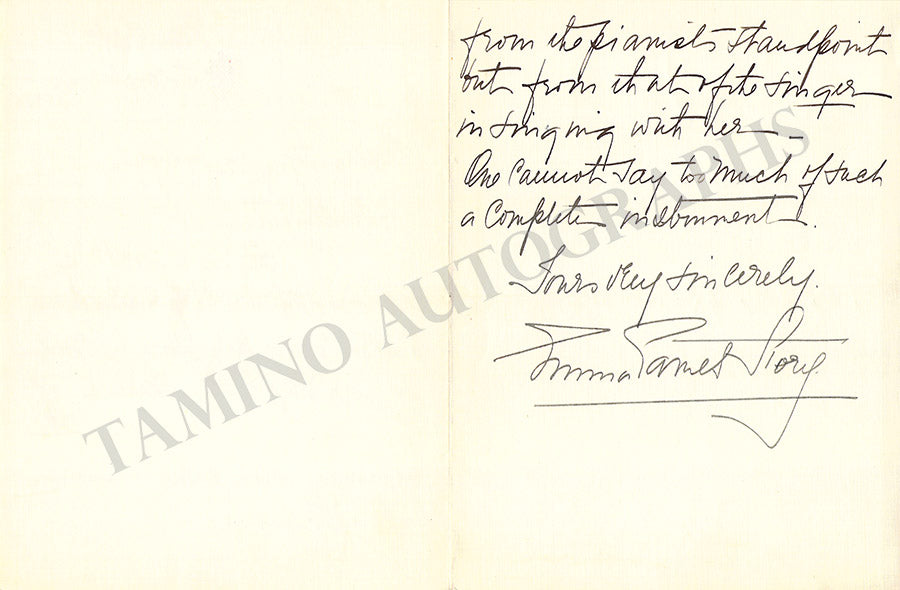 from the pianists standpoint
but from that of the singer
in singing with her—.
One cannot say too much of such
a complete instrument.
Yours very sincerely.
Emma Eames Story.
TAMINO AUTOGRAPHS